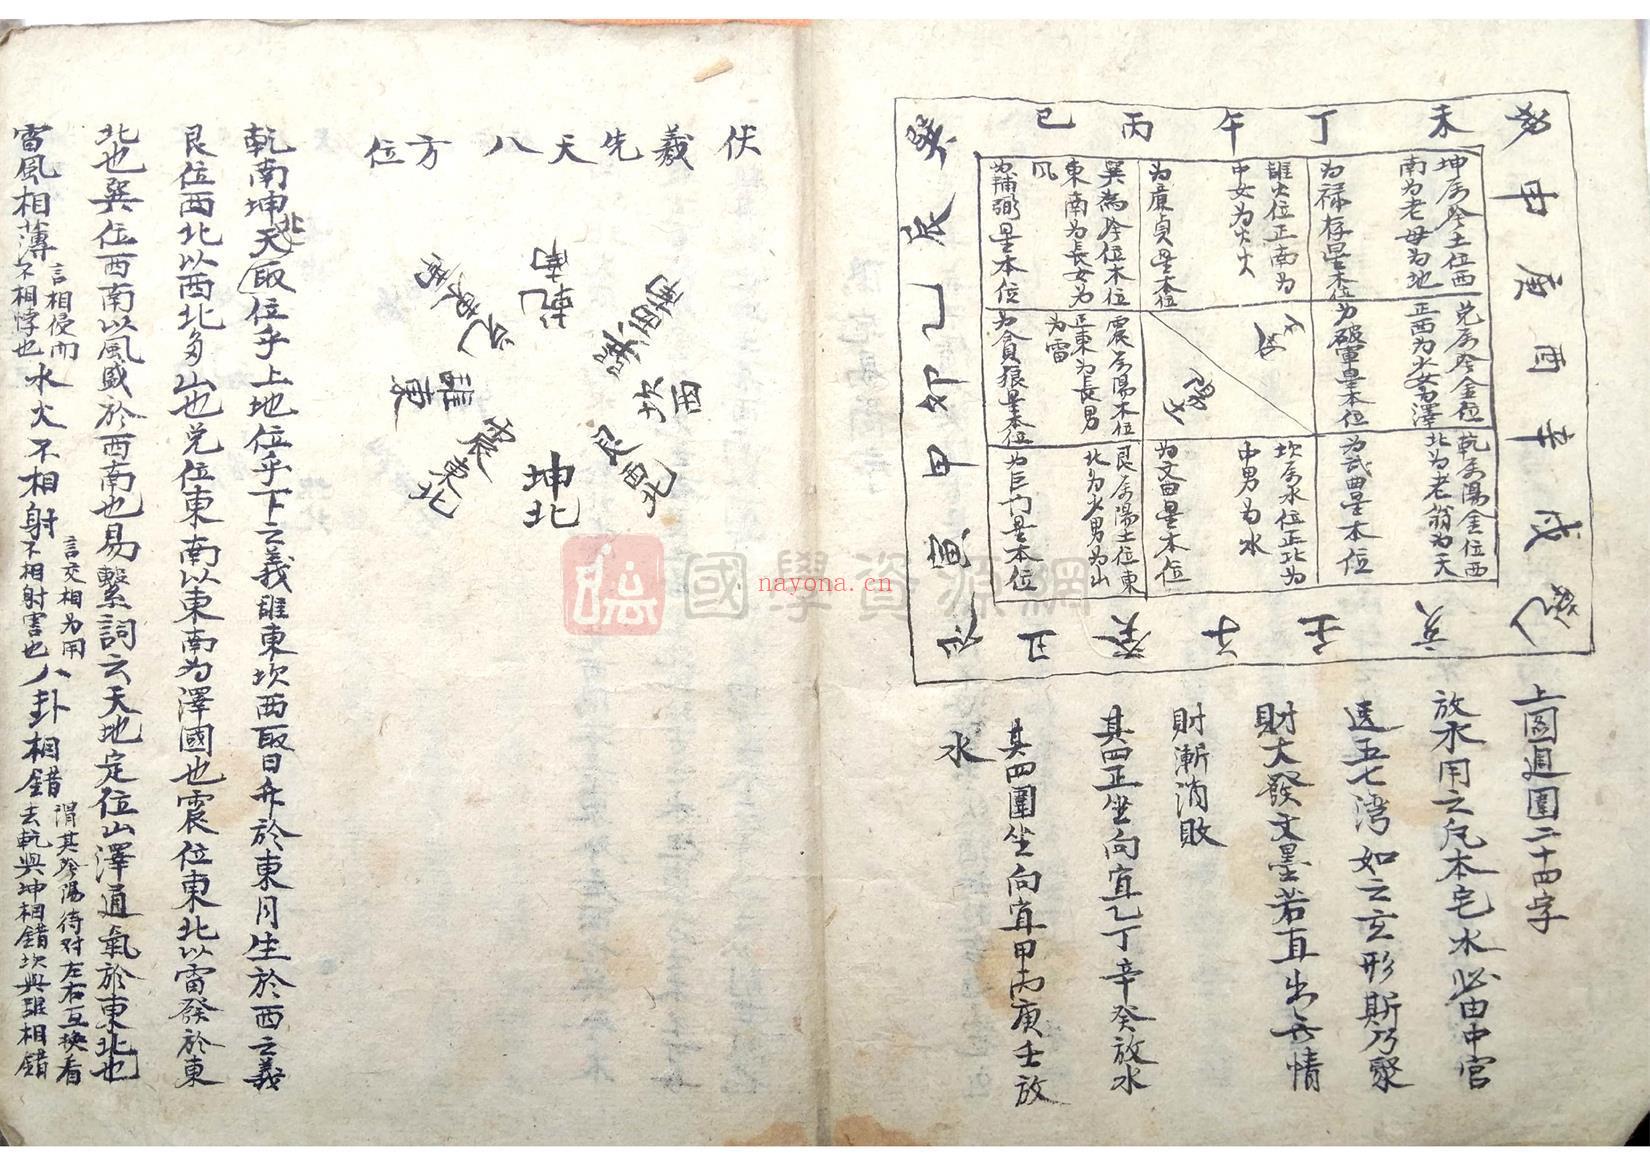 巽 巳 丙 午 丁 未 坤
申 庚 酉 辛 戌 乾
辰 乙 卯 甲 寅
艮 丑 癸 子 壬 亥
坤属阴土位西
南为老母为地
为禄存星本位
離火位正南为
中女为火
为廉貞星本位
巽為阴位木位
東南为長女为
风
为輔弼星本位
兌属阴金位
正西为少女为澤
为破軍星本位
阴
陽
震属陽木位
正東为長男
为雷
为貪狼星本位
乾属陽金位西
北为老翁为天
为武曲星本位
坎属水位正北为
中男为水
为文曲星本位
艮属陽土位東
北为少男为山
为巨门星本位
上圖週圍二十四字
放水用之凡本宅水必由中宮
透五七湾如之玄形斯乃聚
財大發文墨若直出無情
財漸消敗
其四正坐向宜乙丁辛癸放水
其四圍坐向宜甲丙庚壬放
水
伏羲先天八方位
乾南
巽西南
坎西
艮西北
坤北
震東北
離東
兌東南
乾南坤北天取位乎上地位乎下之義離東坎西取日升於東月生於西之義
艮位西北以西北多山也兌位東南以東南为澤國也震位東北以雷發於東
北也巽位西南以風盛於西南也易繫詞云天地定位山澤通氣於東北也
雷風相薄言相侵而不相悖也水火不相射言交相为用不相射害也八卦相錯謂其阴陽待对左右互换看去乾與坤相錯坎與離相錯
國學資源網
nayona.cn